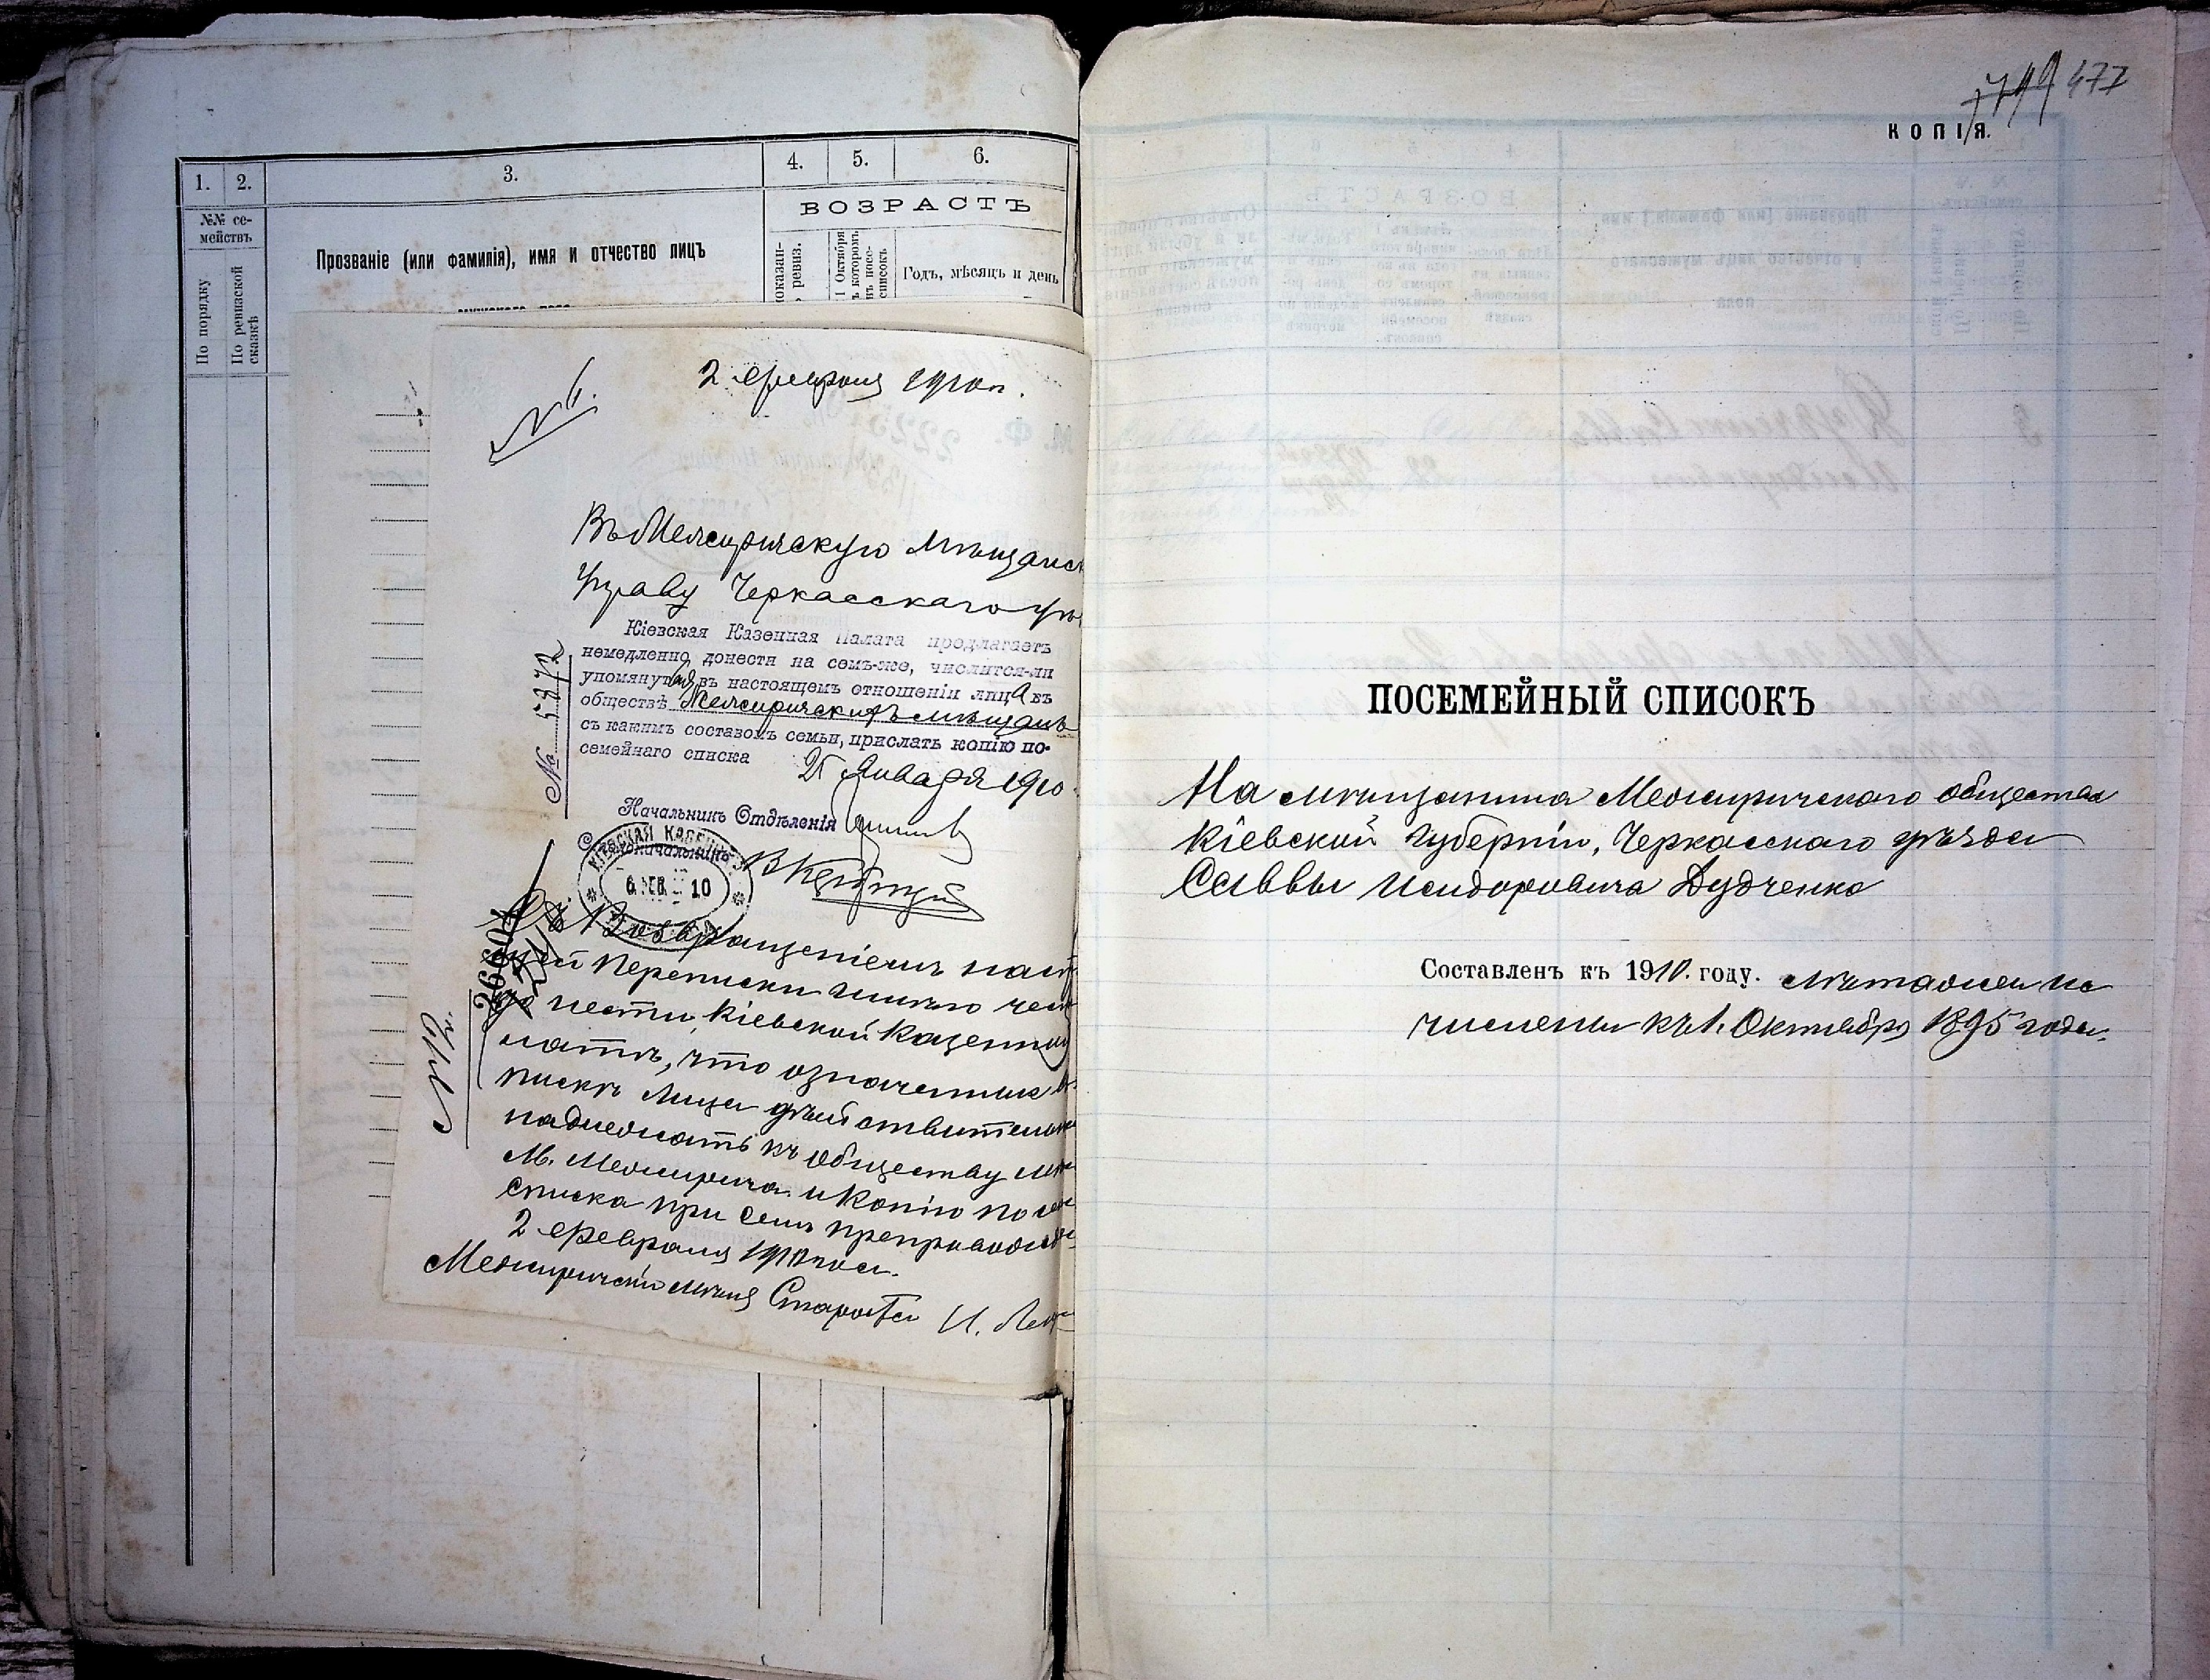 1.
2.
3.
4.
5.
6.
№№ се-
мействъ
По порядку
По ревизской
сказкѣ
Прозваніе (или фамилія), имя и отчество лицъ
ВОЗРАСТЪ
Годъ, мѣсяцъ и день
2 февраля 1910 г.
Въ Межиричскую мѣщанск
Управу Черкасскаго уѣ
Кіевская Казенная Палата предлагаетъ
немедленно донести на семъ-же, числится-ли
упомянутыя въ настоящемъ отношеніи лица въ
обществѣ Межиричскихъ мѣщанъ
съ какимъ составомъ семьи, прислать копію по-
семейнаго списка
№ 5372
25 Января 1910
Начальникъ Отдѣленія
Столоначальникъ
КІЕВСКАЯ КАЗЕН
6. ФЕВ. 10
26601
Съ Возвращеніемъ наст
щей переписки имѣю чест
до нести Кіевской Казенной
латѣ, что означенные въ
пискѣ лица дѣйствительно
надлежатъ къ обществу мѣ
М. Межирича и копію посем
списка при семъ препровожд
2 февраля 1910 года.
Межиричскій мѣщ Староста И.
799 477
КОПІЯ.
ПОСЕМЕЙНЫЙ СПИСОКЪ
На мѣщанина Межиричскаго общества
Кіевской Губерніи, Черкасскаго уѣзда
Саввы Исидоровича Дудченко
Составленъ къ 1910. году. лѣта же ис
числены къ 1. Октября 1895 года.